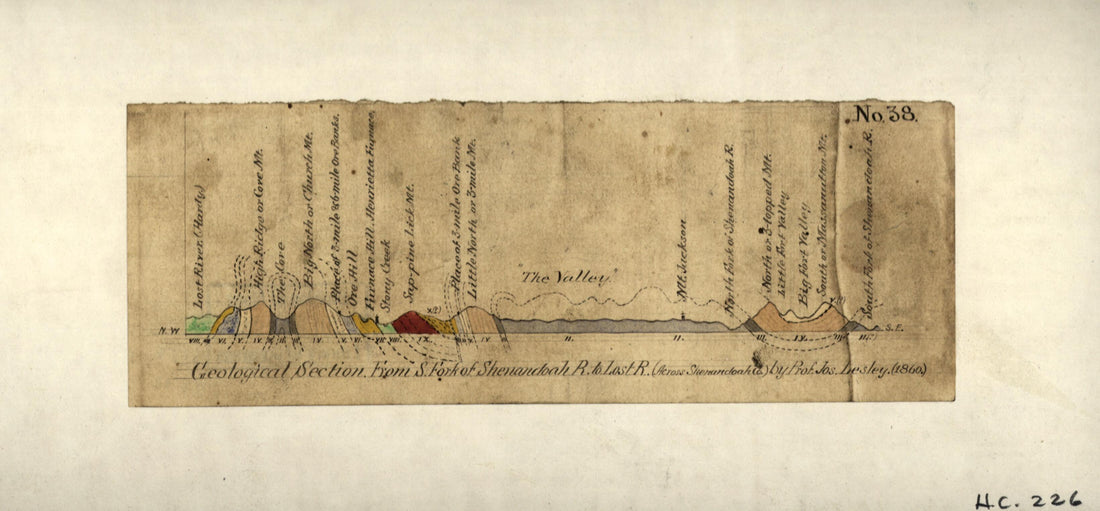 No. 38.
Lost River (Hardy)
High Ridge or Cove Mt.
The Cove
Big North or Church Mt.
Place of 3-mile & 6-mile Ore Banks.
Ore Hill
Furnace Hill. Henrietta Furnace.
Stony Creek
Sap-pine Lick Mt.
Place of 3-mile Ore Bank
Little North, or 3-mile Mt.
"The Valley"
Mt. Jackson
North Fork of Shenandoah R.
North or 3-topped Mt.
Little Fort Valley
Big Fort Valley
South or Massanutton Mt.
South Fork of Shenandoah R.
N. W.
S. E.
Geological Section. From S. Fork of Shenandoah R. to Lost R. (Across Shenandoah Co.) by Prof. Jos. Lesley. (1860.)
H.C. 226